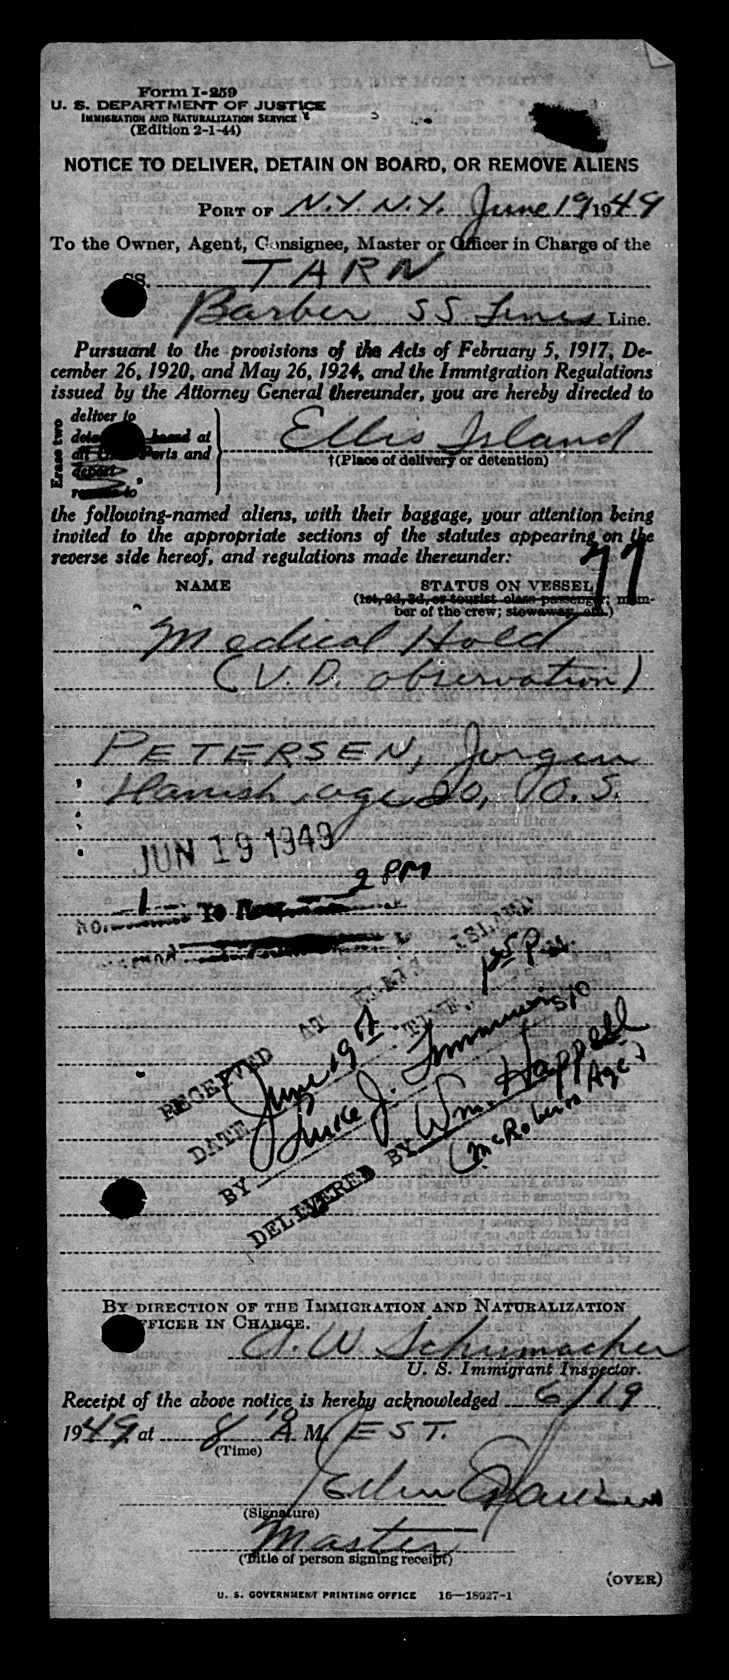 Form I-259
U. S. DEPARTMENT OF JUSTICE
IMMIGRATION AND NATURALIZATION SERVICE
(Edition 2-1-44)
NOTICE TO DELIVER, DETAIN ON BOARD, OR REMOVE ALIENS
PORT OF N.Y. N.Y. June 19 1949
To the Owner, Agent, Consignee, Master or Officer in Charge of the
SS. TARN
Barber SS Lines Line.
Pursuant to the provisions of the Acts of February 5, 1917, De-
cember 26, 1920, and May 26, 1924, and the Immigration Regulations
issued by the Attorney General thereunder, you are hereby directed to
Erase two
deliver to
board at
Ports and
Ellis Island
†(Place of delivery or detention)
the following-named aliens, with their baggage, your attention being
invited to the appropriate sections of the statutes appearing on the
reverse side hereof, and regulations made thereunder:
NAME STATUS ON VESSEL
(1st, 2d, 3d, or tourist class passenger; mem-
ber of the crew; stowaway, etc.)
Medical Hold
(V.D. observation)
PETERSEN, Jorgen
age 20, O.S.
JUN 19 1949
2 PM
No. 1 To
RECEIVED AT ELLIS ISLAND
DATE June 19 TIME 125 P.M.
BY Luke J.
DELIVERED BY Wm. Happell
BY DIRECTION OF THE IMMIGRATION AND NATURALIZATION
OFFICER IN CHARGE.
A. W. Schumacher
U. S. Immigrant Inspector.
Receipt of the above notice is hereby acknowledged 6/19
1949, at 8 10 A. M. EST.
(Time)
(Signature)
Master
(Title of person signing receipt)
(OVER)
U. S. GOVERNMENT PRINTING OFFICE 16—18927-1